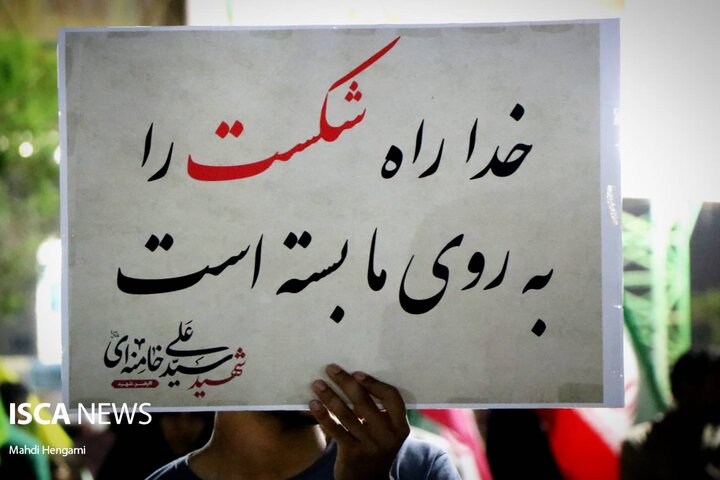 خدا راه شکست را
به روی ما بسته است
شهید سید علی خامنه‌ای
ISCA NEWS
Mahdi Hengami